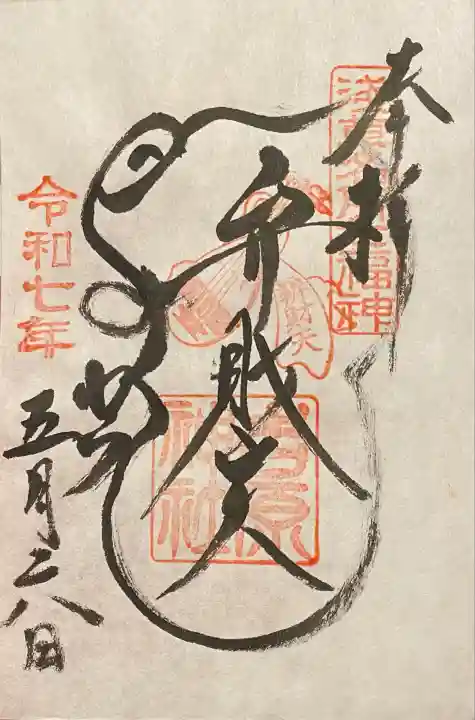 奉拝
浅草名所七福神
弁財天
弁財天
吉原
神社
令和七年
五月二八日